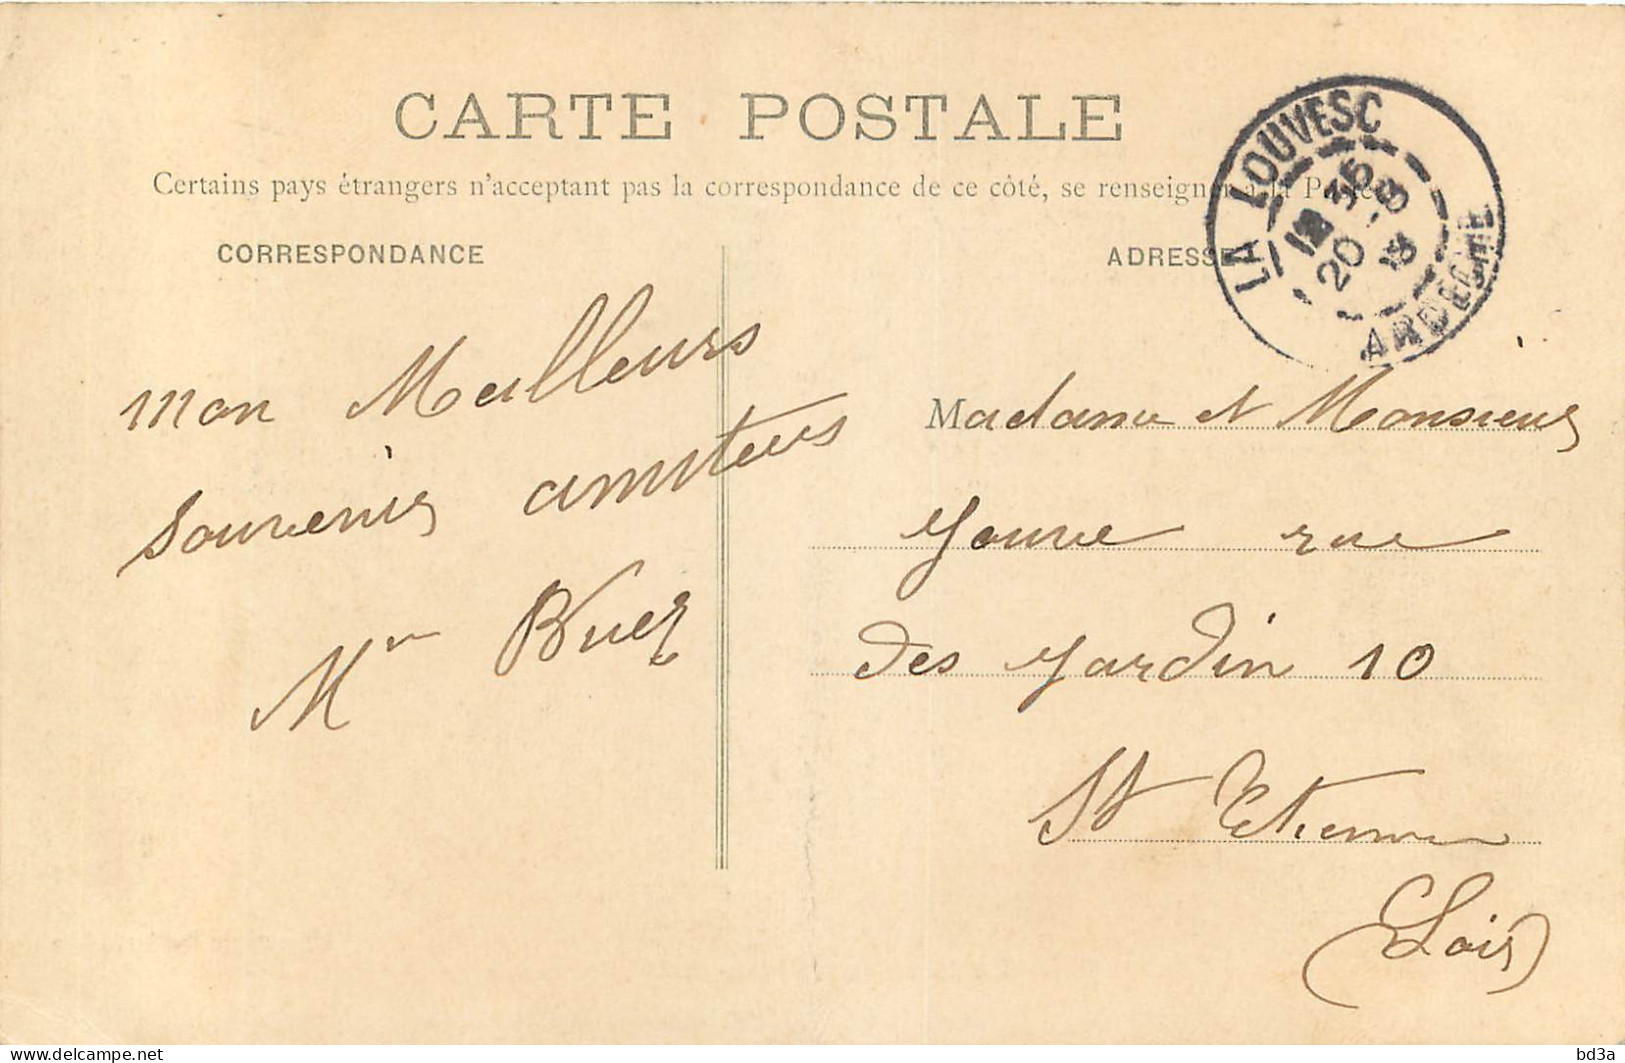 CARTE POSTALE
Certains pays étrangers n'acceptant pas la correspondance de ce côté, se renseigner à la Poste
CORRESPONDANCE
ADRESSE
LA LOUVESC
35
20 -8
13
ARDÈCHE
mon Meilleurs
souvenirs amiteus
Mm
Madame et Monsieur
Youve rue
des Jardin 10
St Etienne
(Loire)
delcampe.net
bd3a